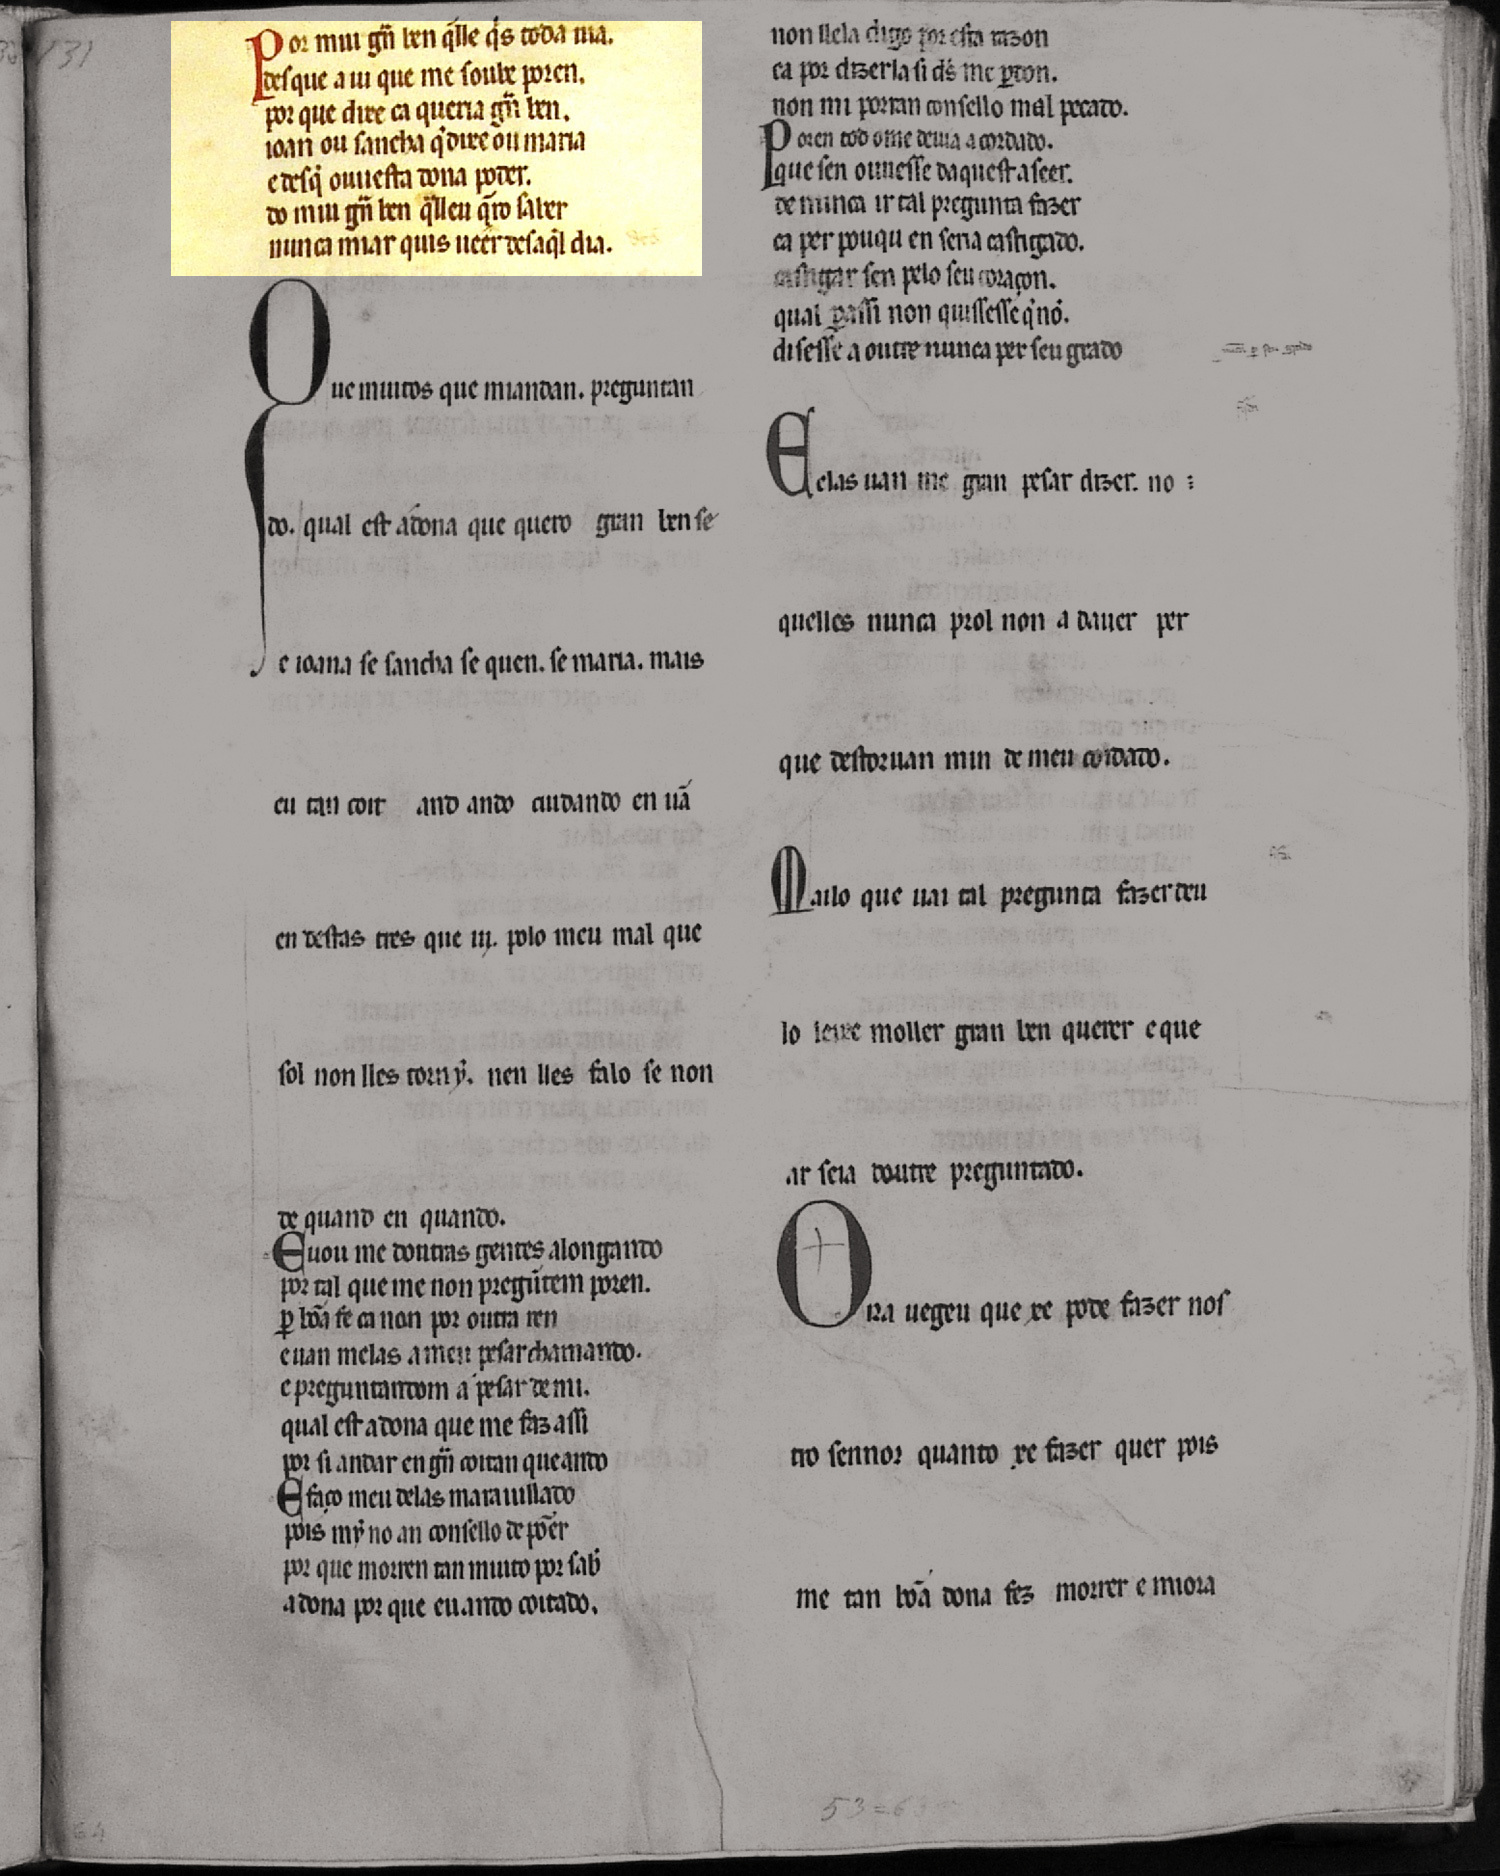 Por mui grã ben q̃lle q̇s toda uia.
des que a ui que me soube poren.
por que dixe ca queria grã ben.
ioan ou sancha q̇ dixe ou maria
e desq̃ ouuesta dona poder.
do mui grã ben q̃lleu q̃ro saber
nunca miar quis ueer desaq̃l dia.
Que muitos que miandan. preguntan
do. qual est adona que quero gran ben se
e ioana se sancha se quen. se maria. mais
eu tan coit and ando cuidando en uã
en destas tres que ui. polo meu mal que
sol non lles torn ẏ. nen lles falo se non
de quand en quando.
E uou me doutras gentes alongando
por tal que me non pregũtem poren.
ꝑ bõa fe ca non por outra ren
e uan melas a meu pesar chamando.
e preguntandom a pesar de mi.
qual est a dona que me faz assi
por si andar en grã coitan que ando
E faço meu delas marauillado
pois mẏ no an consello de põer
por que morren tan muito por sab̃
a dona por que eu ando coitado.
non llela digo por esta razon
ca por dizerla si ds̃ me ꝑdon.
non mi porran consello mal pecado.
Poren tod ome deuia acordado.
que sen ouuesse daquest a seer.
de nunca ir tal pregunta fazer
ca per pouqu en seria castigado.
castigar sen pelo seu coraçon.
qual ꝑassi non quisesse q̇ nõ.
disesse a outre nunca per seu grado
E elas uan me gran pesar dizer. no
quelles nunca prol non a dauer per
que destoruan min de meu coidado.
Mailo que uai tal pregunta fazer deu
lo leixe moller gran ben querer e que
ar seia doutre preguntado.
Ora uegeu que xe pode fazer nos
tro sennor quanto xe fazer quer pois
me tan bõa dona fez morrer e miora
53=63